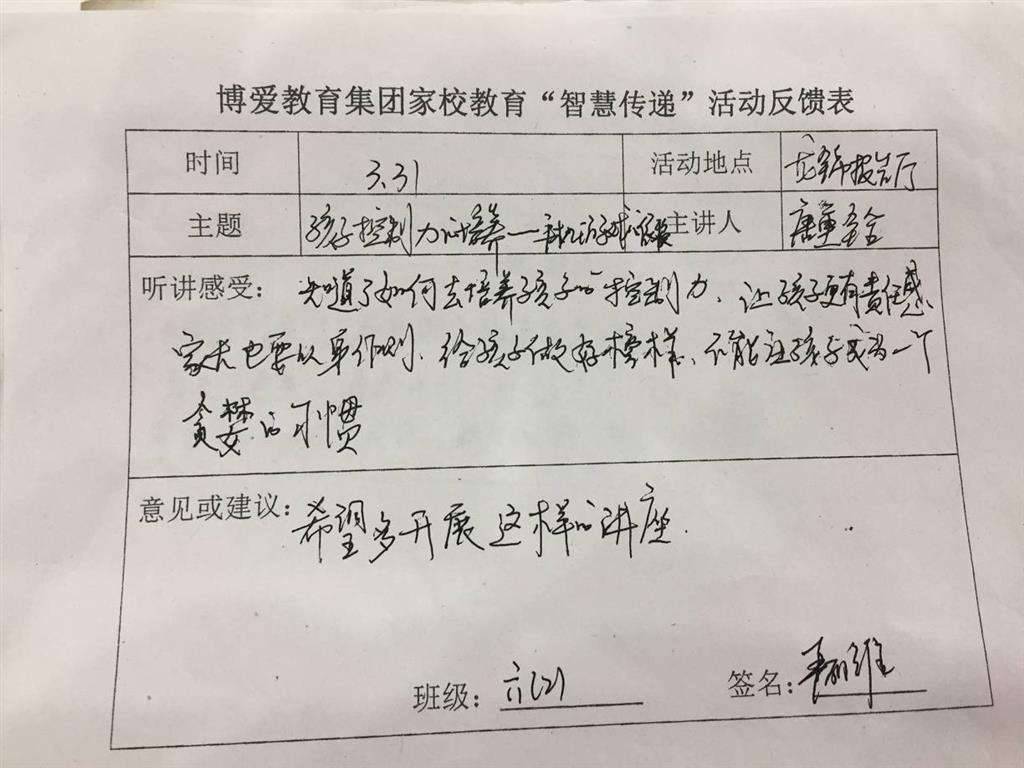 博爱教育集团家校教育“智慧传递”活动反馈表
时间 3.31 活动地点 报告厅
主题 孩子控制力的培养—手机游戏 主讲人 唐重
听讲感受: 知道了如何去培养孩子的控制力、让孩子更有责任感、
家长也要以身作则、给孩子做好榜样、不能让孩子成为一个
贪婪的习惯
意见或建议: 希望多开展这样的讲座.
班级: 六(2) 签名: